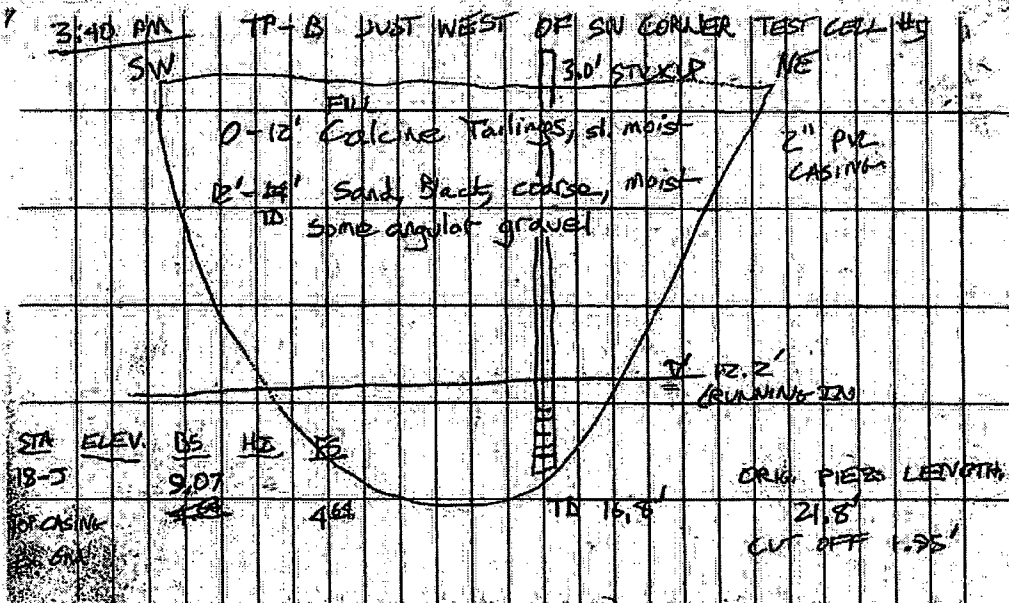 3:40 PM TP-B JUST WEST OF SW CORNER TEST CELL #5
SW 3.0' STICKUP NE
FILL
0-12' Calcine Tailings, sl. moist
2" PVC
CASING
12'- Sand, Black, coarse, moist
TD
some angular gravel
12.2'
(RUNNING IN
STA ELEV. BS HI FS
18-J 9.07
ORIG. PIEZO LENGTH
TOP CASING 4.64 4.64 TD 16.8' 21.8'
CUT OFF 1.95'